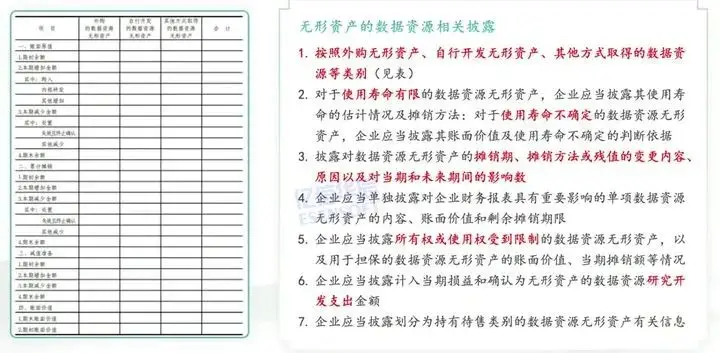 项 目
外购的数据资源无形资产
自行开发的数据资源无形资产
其他方式取得的数据资源无形资产
合 计
一、账面原值
1.期初余额
2.本期增加金额
其中：购入
内部研发
其他增加
3.本期减少金额
其中：处置
失效且终止确认
其他减少
4.期末余额
二、累计摊销
1.期初余额
2.本期增加金额
3.本期减少金额
其中：处置
失效且终止确认
其他减少
4.期末余额
三、减值准备
1.期初余额
2.本期增加金额
3.本期减少金额
4.期末余额
四、账面价值
1.期末账面价值
2.期初账面价值
无形资产的数据资源相关披露
1. 按照外购无形资产、自行开发无形资产、其他方式取得的数据资
源等类别（见表）
2. 对于使用寿命有限的数据资源无形资产，企业应当披露其使用寿
命的估计情况及摊销方法；对于使用寿命不确定的数据资源无形
资产，企业应当披露其账面价值及使用寿命不确定的判断依据
3. 披露对数据资源无形资产的摊销期、摊销方法或残值的变更内容、
原因以及对当期和未来期间的影响数
4. 企业应当单独披露对企业财务报表具有重要影响的单项数据资源
无形资产的内容、账面价值和剩余摊销期限
5. 企业应当披露所有权或使用权受到限制的数据资源无形资产，以
及用于担保的数据资源无形资产的账面价值、当期摊销额等情况
6. 企业应当披露计入当期损益和确认为无形资产的数据资源研究开
发支出金额
7. 企业应当披露划分为持有待售类别的数据资源无形资产有关信息